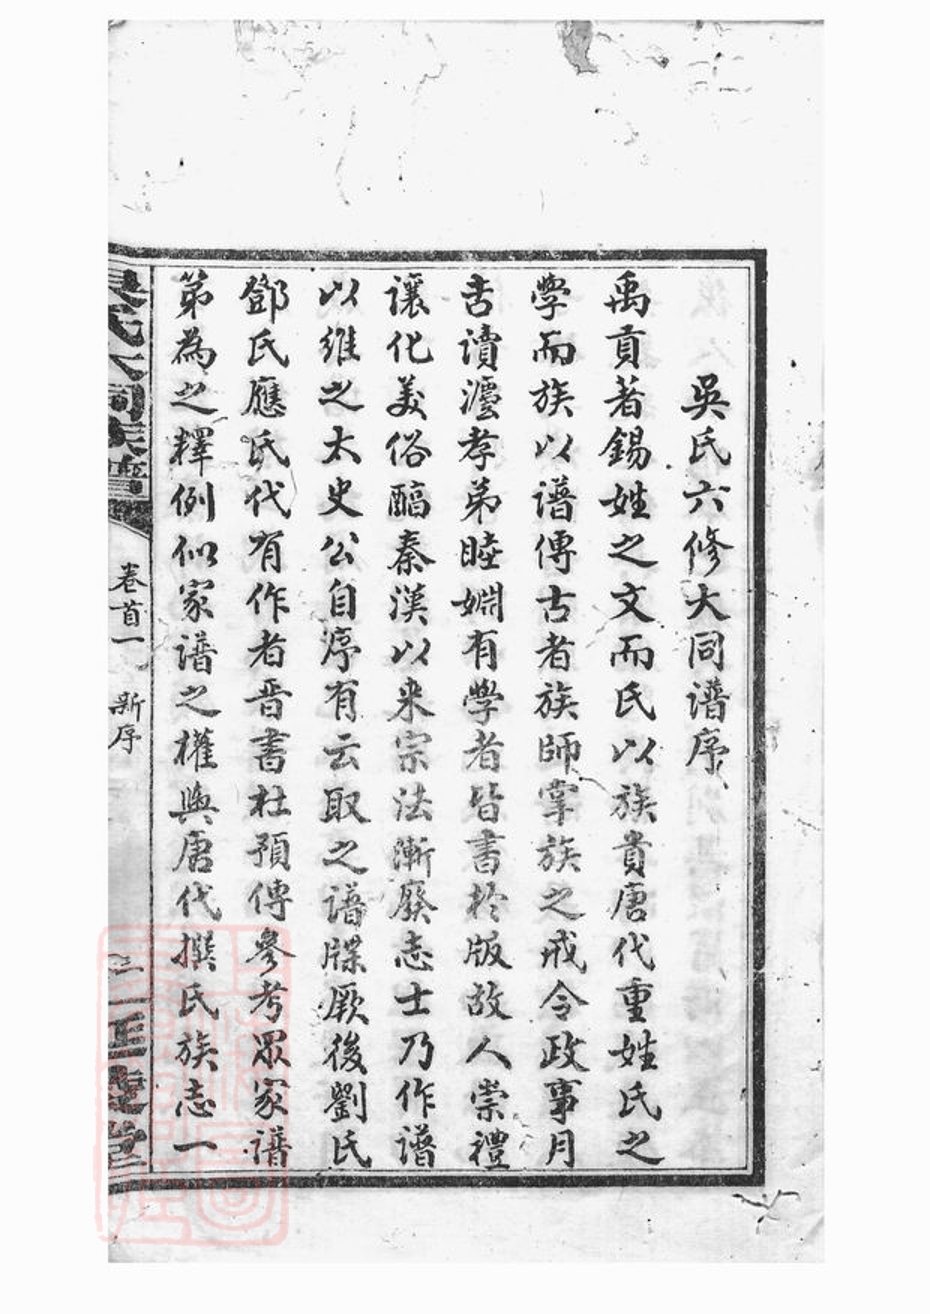 吳氏六修大同譜序
禹貢著錫姓之文而氏以族貴唐代重姓氏之
學而族以譜傳古者族師掌族之戒令政事月
吉讀灋孝弟睦婣有學者皆書於版故人崇禮
讓化美俗醕秦漢以來宗法漸廢志士乃作譜
以維之太史公自序有云取之譜牒厥後劉氏
鄧氏應氏代有作者晋書杜預傳參考眾家譜
第為之釋例似家譜之權輿唐代撰氏族志一
吳氏大同族譜
卷首一
新序
二
堂